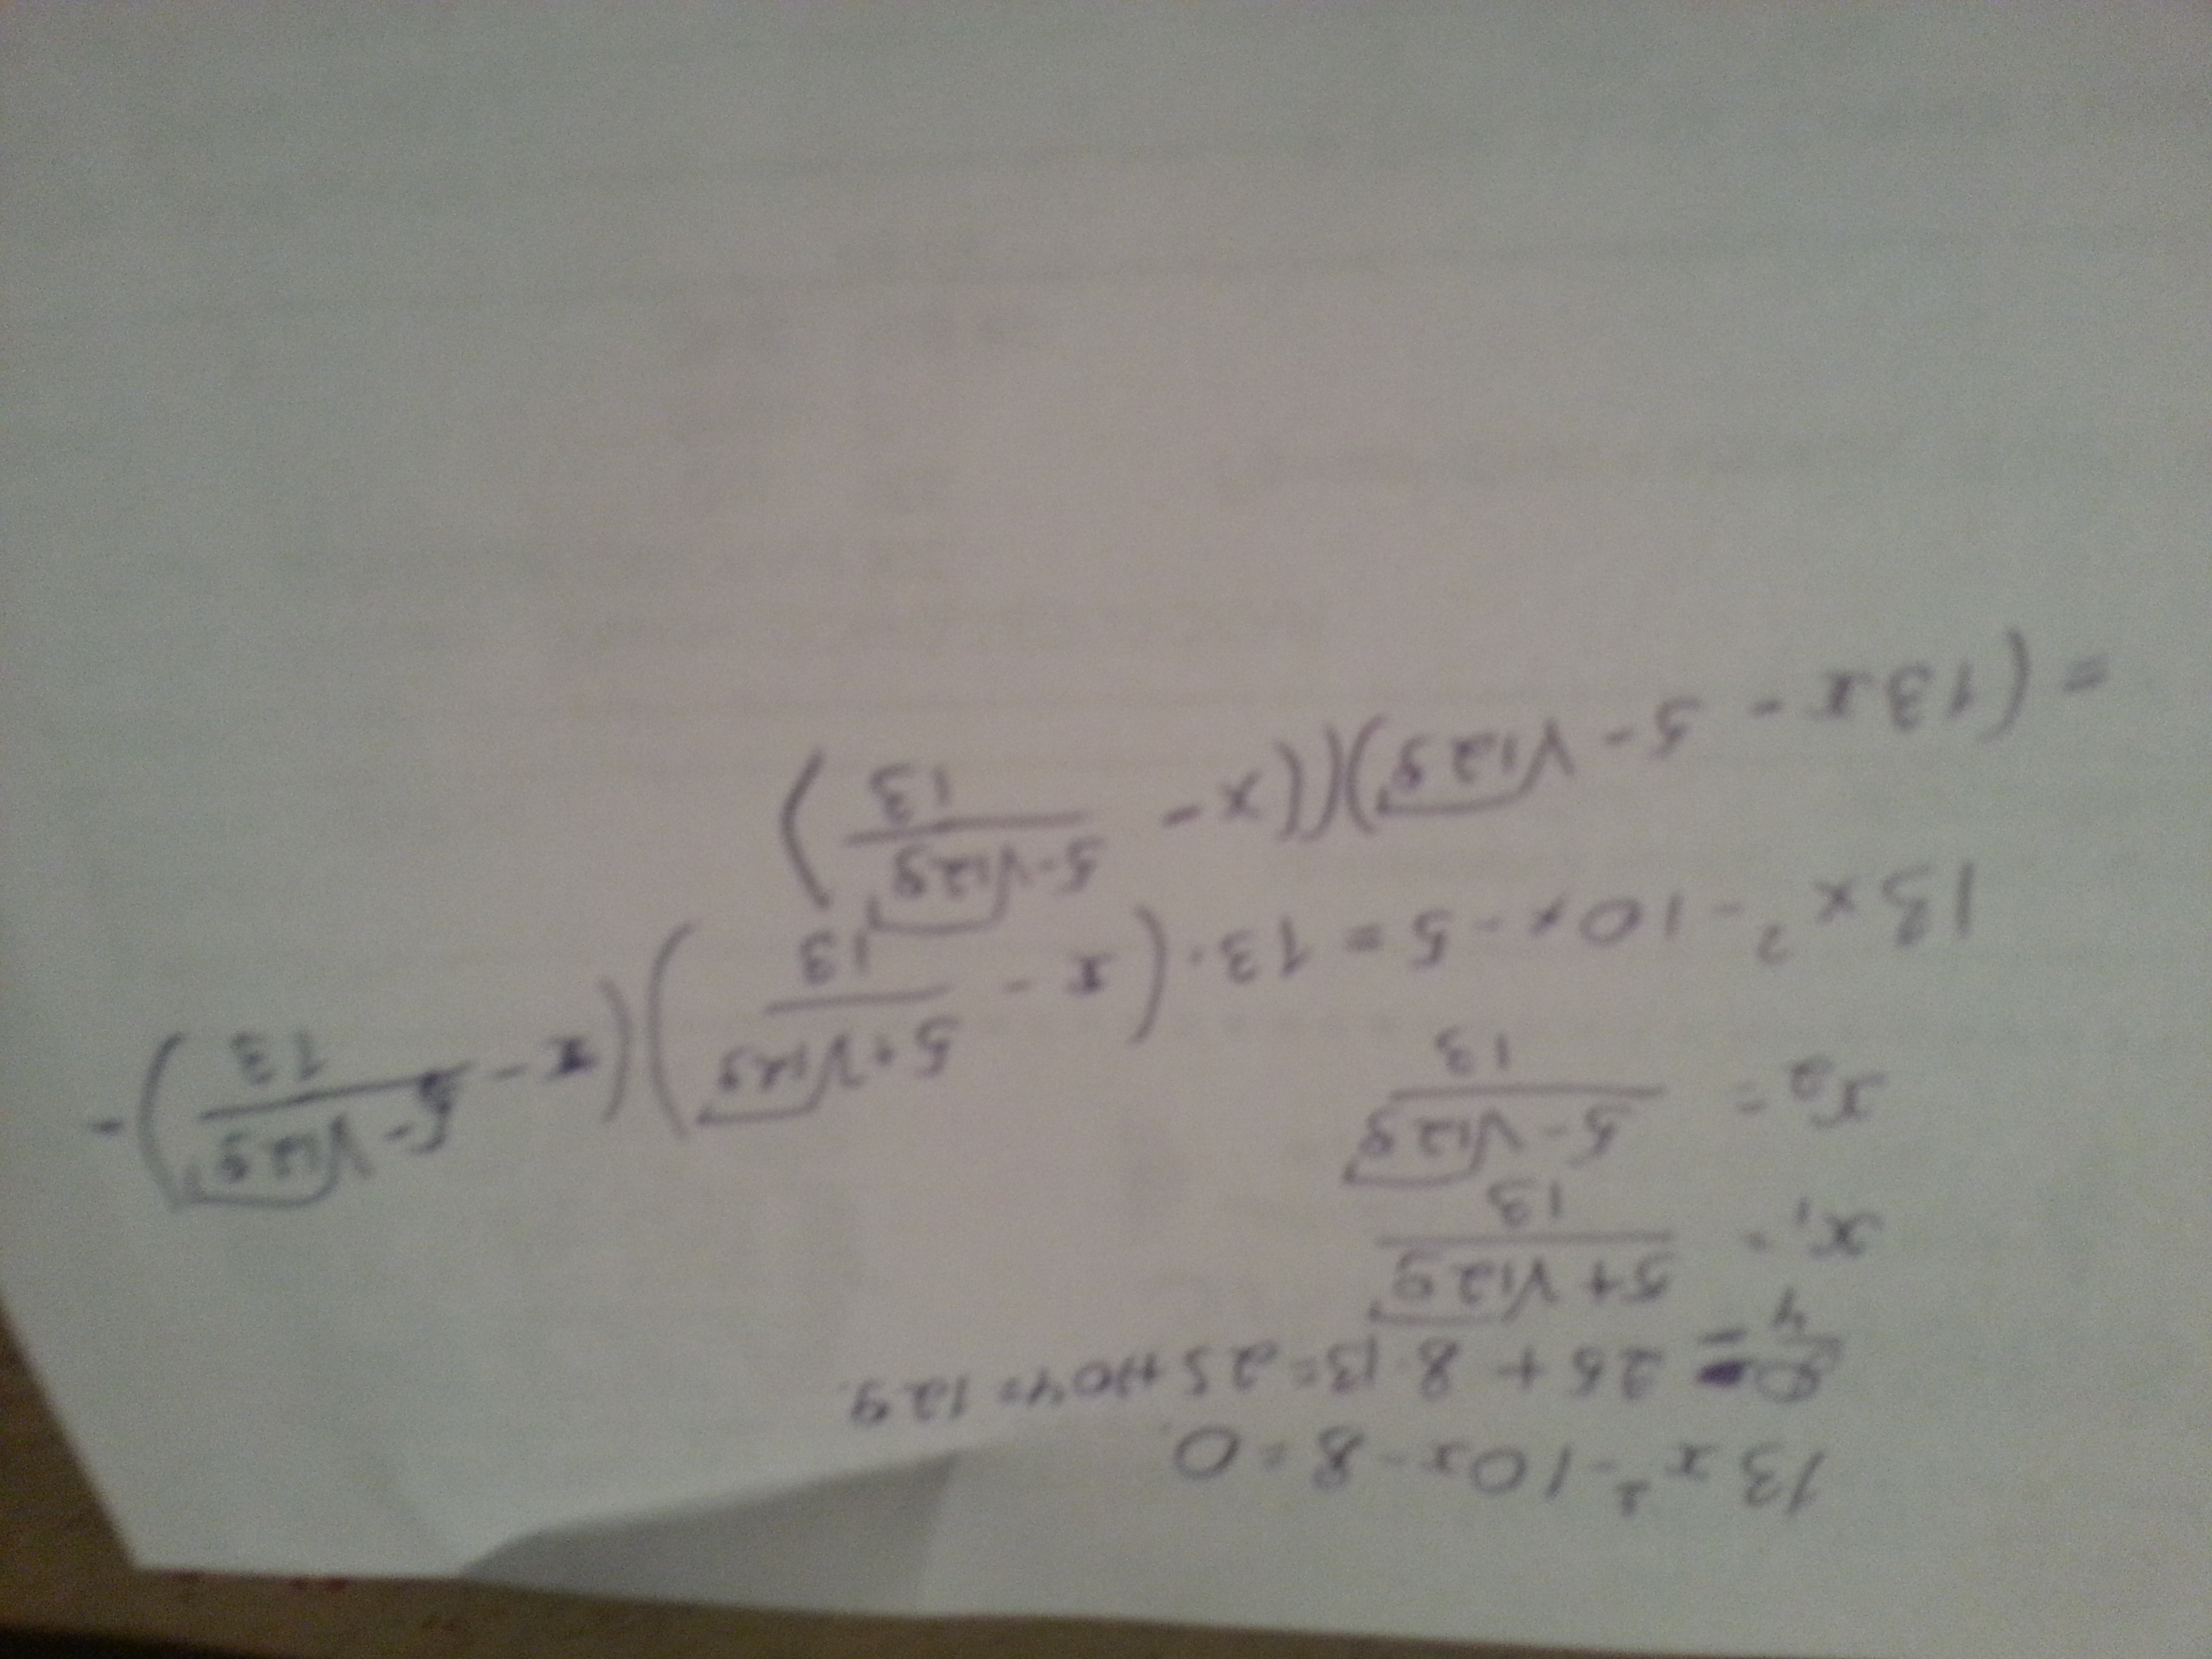 13x² - 10x - 8 = 0.
D/4 = 25 + 8·13 = 25 + 104 = 129.
x₁ = (5+√129)/13
x₂ = (5-√129)/13
13x² - 10x - 5 = 13·(x - (5+√129)/13)(x - (5-√129)/13) =
= (13x - 5 - √129)((x - (5-√129)/13)